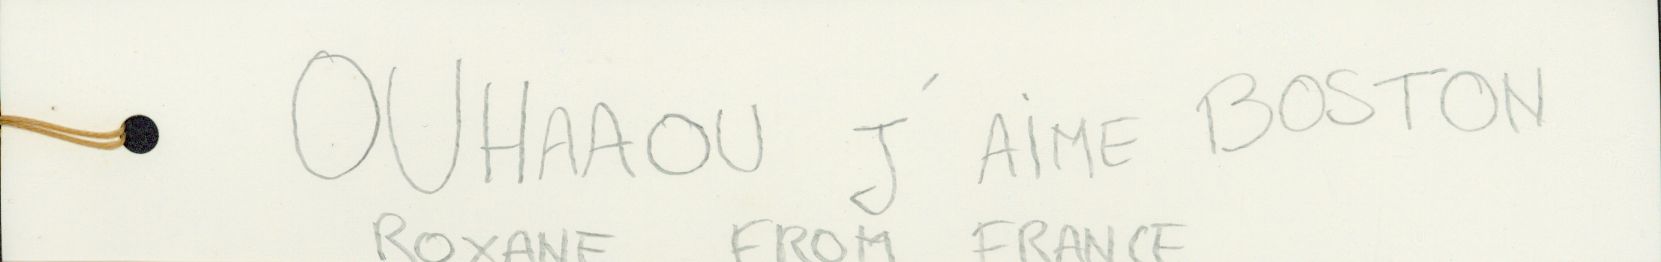 OUHAAOU J'AIME BOSTON
ROXANE FROM FRANCE